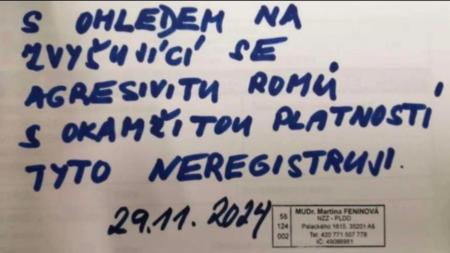 S OHLEDEM NA
ZVYŠUJÍCÍ SE
AGRESIVITU ROMŮ,
S OKAMŽITOU PLATNOSTÍ
TYTO NEREGISTRUJI.
29.11. 2024
56
124
002
MUDr. Martina FENINOVÁ
NZZ - PLDD
Palackého 1615, 35201 Aš
Tel: 420 771 507 778
IČ: 49086961